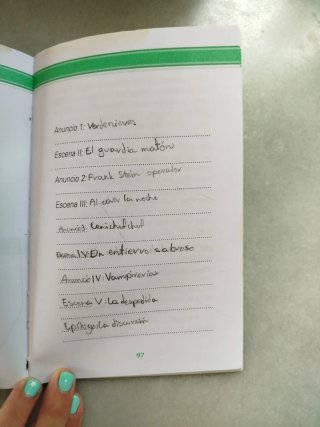 Anuncio 1: Verdenieves
Escena II: El guardia matón
Anuncio 2: Frank Stein operador
Escena III: Al caer la noche
Anuncio 3: Cenichefchef
Escena IV: Un entierro sabroso
Anuncio IV: Vampirerías
Escena V: La despedida
Epílogo: La discursión
97